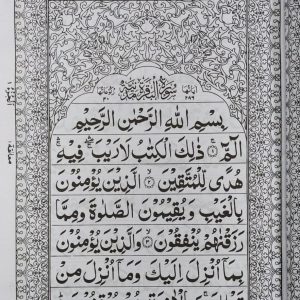 سورة البقرة مدنية
بسم الله الرحمن الرحيم
الم ۝ ذلك الكتب لا ريب فيه
هدى للمتقين ۝ الذين يؤمنون
بالغيب و يقيمون الصلوة ومما
رزقنهم ينفقون ۝ والذين يؤمنون
بما أنزل اليك وما أنزل من